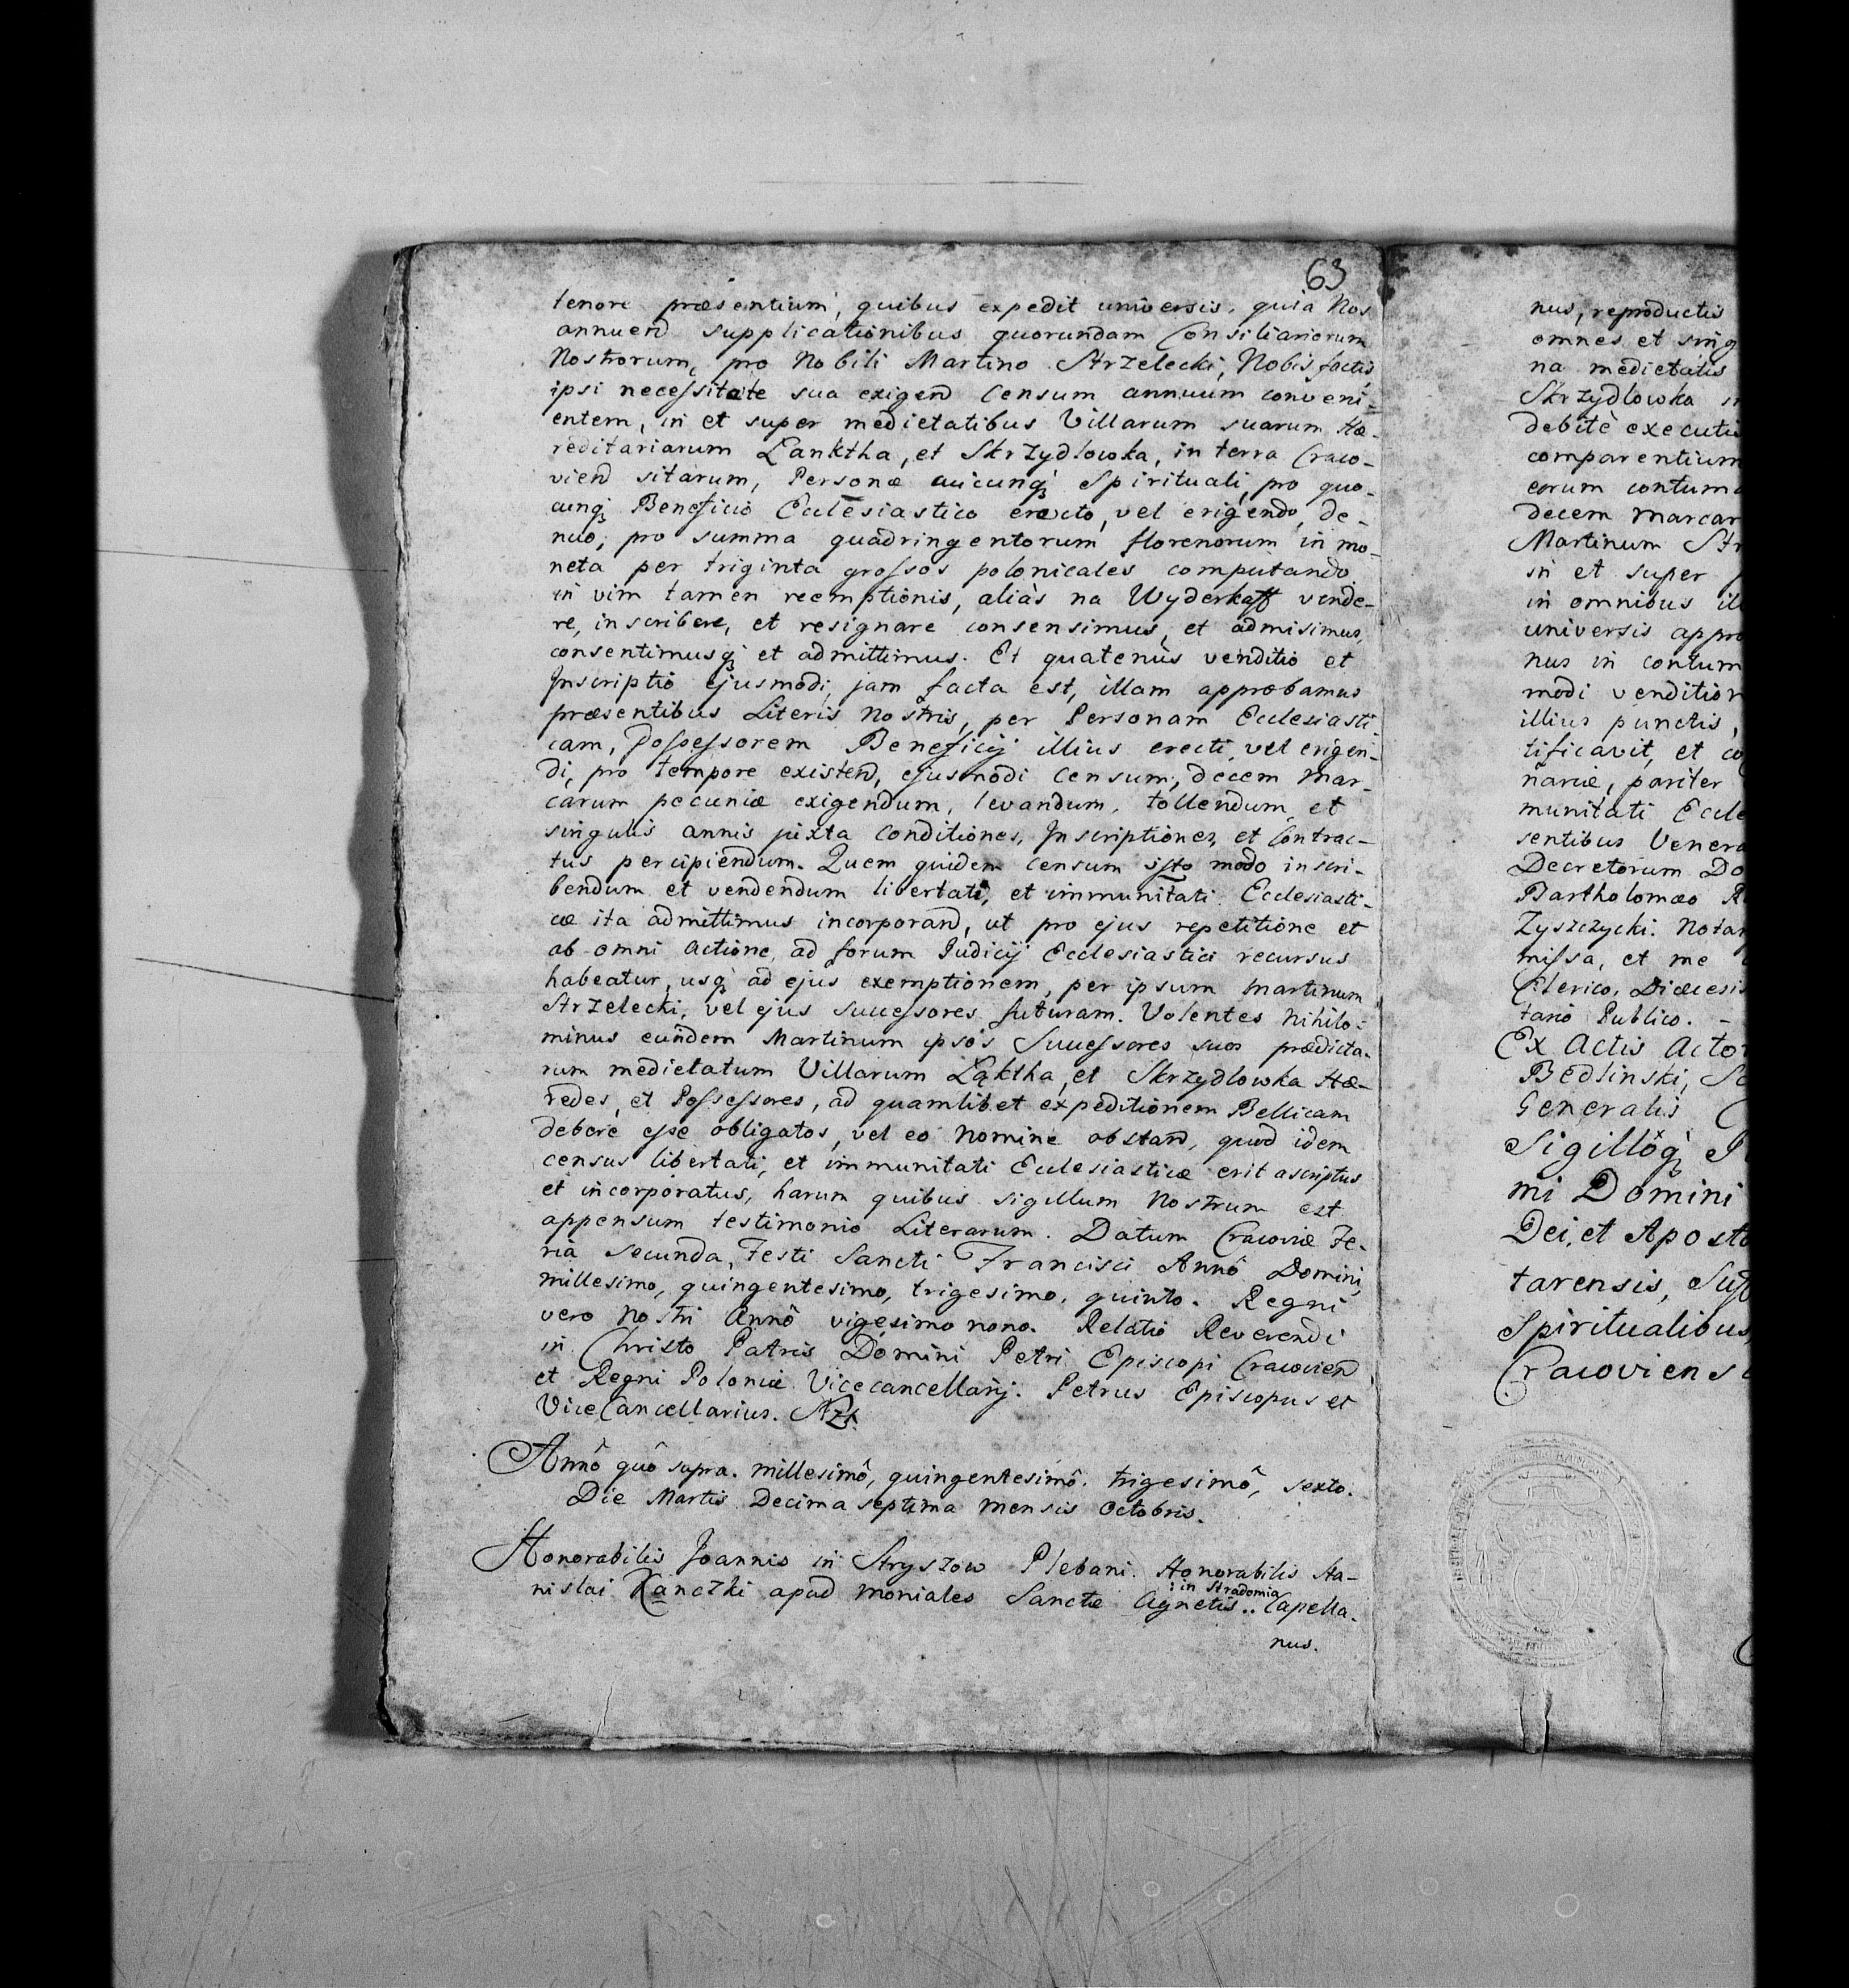 63
tenore præsentium, quibus expedit universis, quia Nos
annuend supplicationibus quorundam Consiliariorum
Nostrorum, pro Nobili Martino Strzelecki, Nobis factis,
ipsi necessitate sua exigend Censum annuum conveni-
entem, in et super medietatibus Villarum suarum Hæ-
reditariarum Lanktha, et Skrzydlowka, in terra Craco-
viend sitarum, Personæ cuicunq Spirituali, pro quo-
cunq Beneficio Ecclesiastico erecto, vel erigendo, de-
nuo, pro summa quadringentorum florenorum in mo-
neta per triginta grossos polonicales computando
in vim tamen reemptionis, aliàs na Wyderkaff vende-
re, inscribere, et resignare consensimus, et admisimus,
consentimusq et admittimus. Et quatenùs venditio et
Inscriptio ejusmodi, jam facta est, illam approbamus
præsentibus Literis nostris, per Personam Ecclesiasti-
cam, Possessorem Beneficij illius erecti vel erigen-
di, pro tempore existend, ejusmodi Censum, decem Mar-
carum pecuniæ exigendum, levandum, tollendum, et
singulis annis juxta Conditiones, Inscriptiones, et Contrac-
tus percipiendum. Quem quidem censum isto modo inscri-
bendum et vendendum libertati, et immunitati Ecclesiasti-
cæ ita admittimus incorporand, ut pro ejus repetitione et
ab omni actione, ad forum Judicij Ecclesiastici recursus
habeatur, usq ad ejus exemptionem, per ipsum Martinum
Strzelecki, vel ejus Successores futuram. Volentes nihilo-
minus eundem Martinum ipsos Successores suos prædicta-
rum medietatum Villarum Ląktha, et Skrzydlowka Hæ-
redes, et Possessores, ad quamlibet expeditionem Bellicam
debere esse obligatos, vel eo Nomine obstand, quod idem
census libertati, et immunitati Ecclesiasticæ erit ascriptus
et incorporatus, harum quibus sigillum Nostrum est
appensum testimonio Literarum. Datum Cracoviæ Fe-
ria secunda, Festi Sancti Francisci Annô Domini,
millesimo, quingentesimo, trigesimo, quinto. Regni
vero Nostri Annô vigesimo nono. Relatio Reverendi
in Christo Patris Domini Petri Episcopi Cracoviend
et Regni Poloniæ Vicecancellarij. Petrus Episcopus et
ViceCancellarius.
Annô quô supra. millesimô, quingentesimô, trigesimô, sexto.
Die Martis Decima septima mensis Octobris.
Honorabilis Joannis in Stryszow Plebani. Honorabilis Sta-
nislai Kanczki apud moniales Sanctæ Agnetis : in Stradomia .. Capella-
nus.
nus, reproductis
omnes et sing
na medietatis
Skrzydlowka
debitè executi
comparentium
eorum contuma
decem marcar
Martinum Str
in et super
in omnibus ill
universis appro
nus in contum
modi venditio
illius punctis,
tificavit, et co
nariæ, pariter
munitati Eccle
sentibus Venera
Decretorum Do
Bartholomæo
Zyszczycki. Notar
missa, et me
Clerico, Diæcesis
tario Publico. -
Ex Actis Acto
Bedlinski, S
Generalis
Sigillôq
mi Domini
Dei, et Aposto
tarensis, Suf
Spiritualibus
Cracoviens